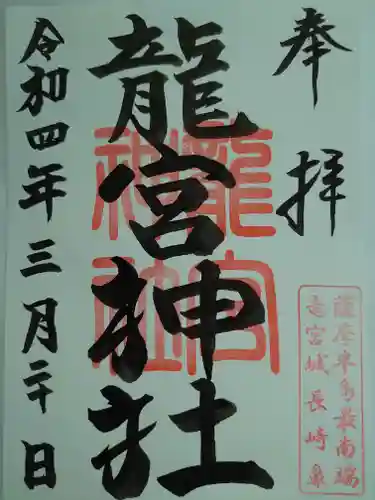 奉拝
龍宮神社
龍宮神社
薩摩半島最南端
竜宮城長崎鼻
令和四年三月二十日